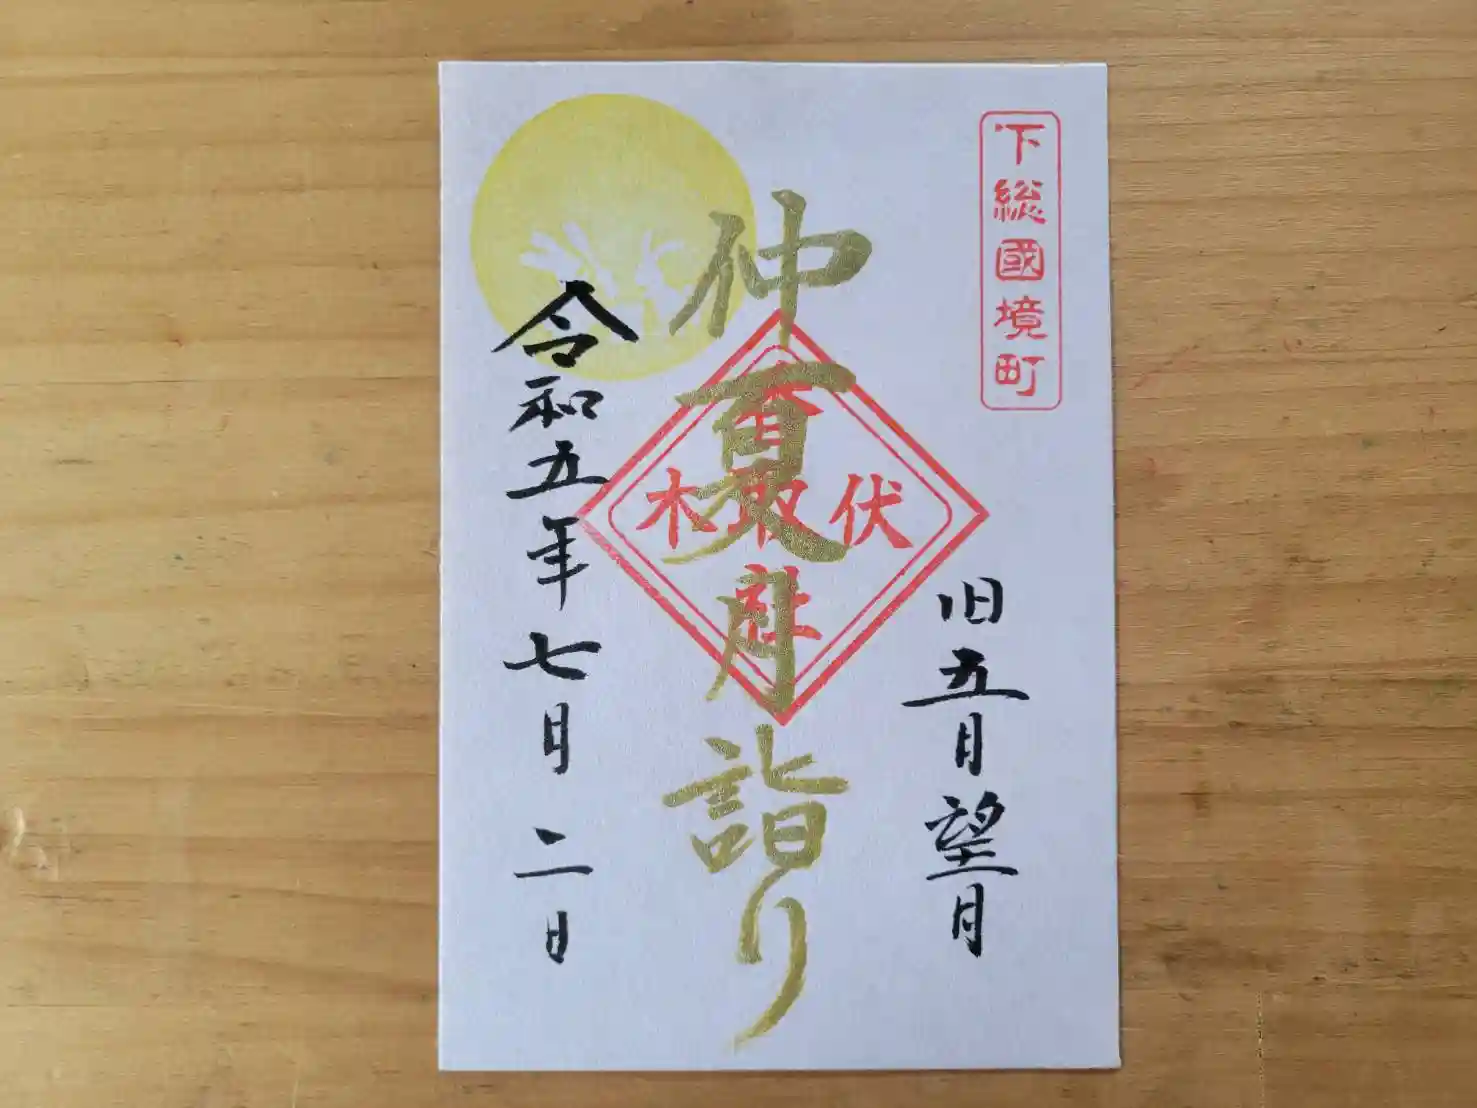 下総國境町
旧五月望月
仲夏月詣り
香取社
伏木
令和五年七月二日